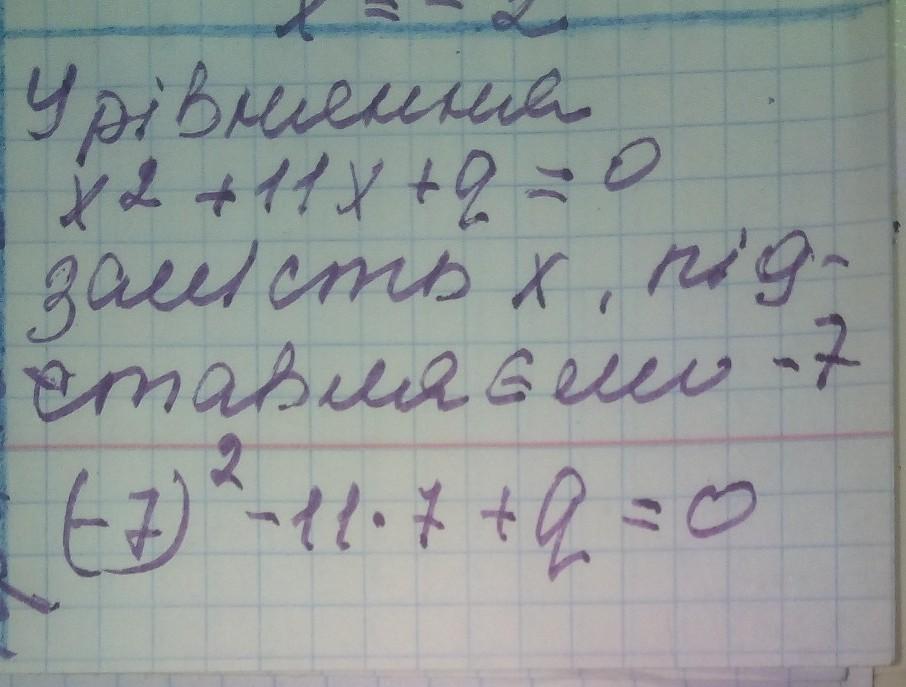 x = - 2
Урівняння
x2 + 11x + q = 0
замість x, під-
ставляємо -7
(-7)² - 11 · 7 + q = 0